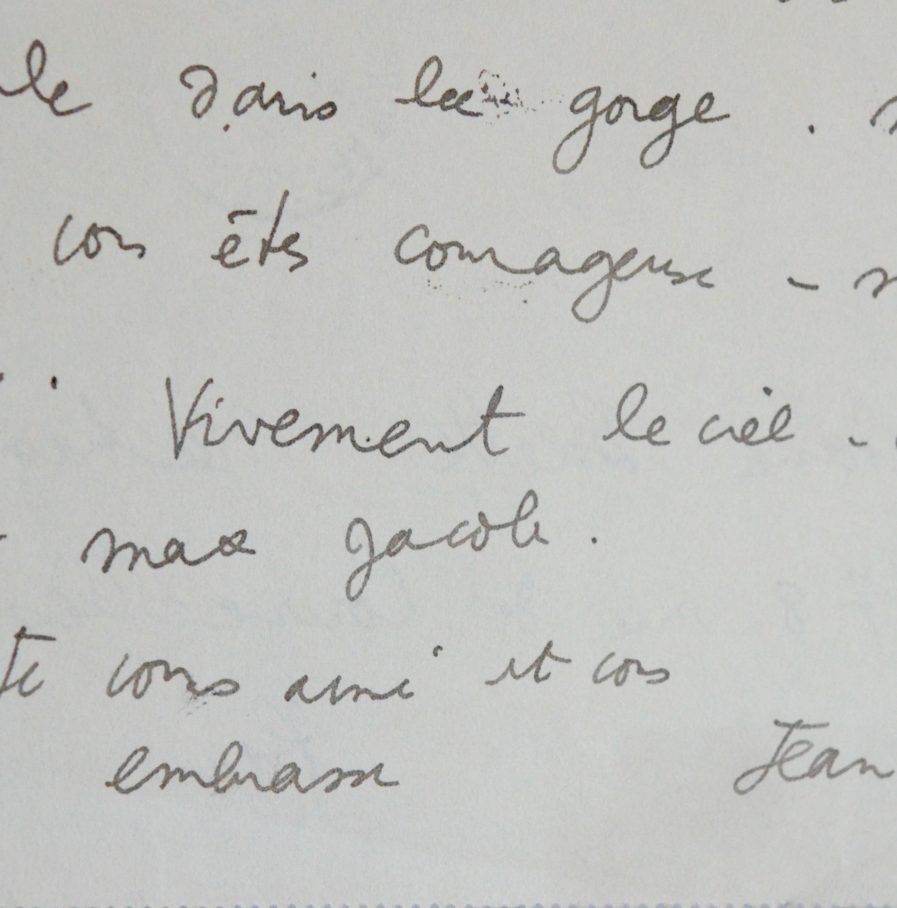 le dans la gorge .
vous êtes courageuse -
. Vivement le ciel -
max Jacob .
Je vous aime et vous
embrasse Jean